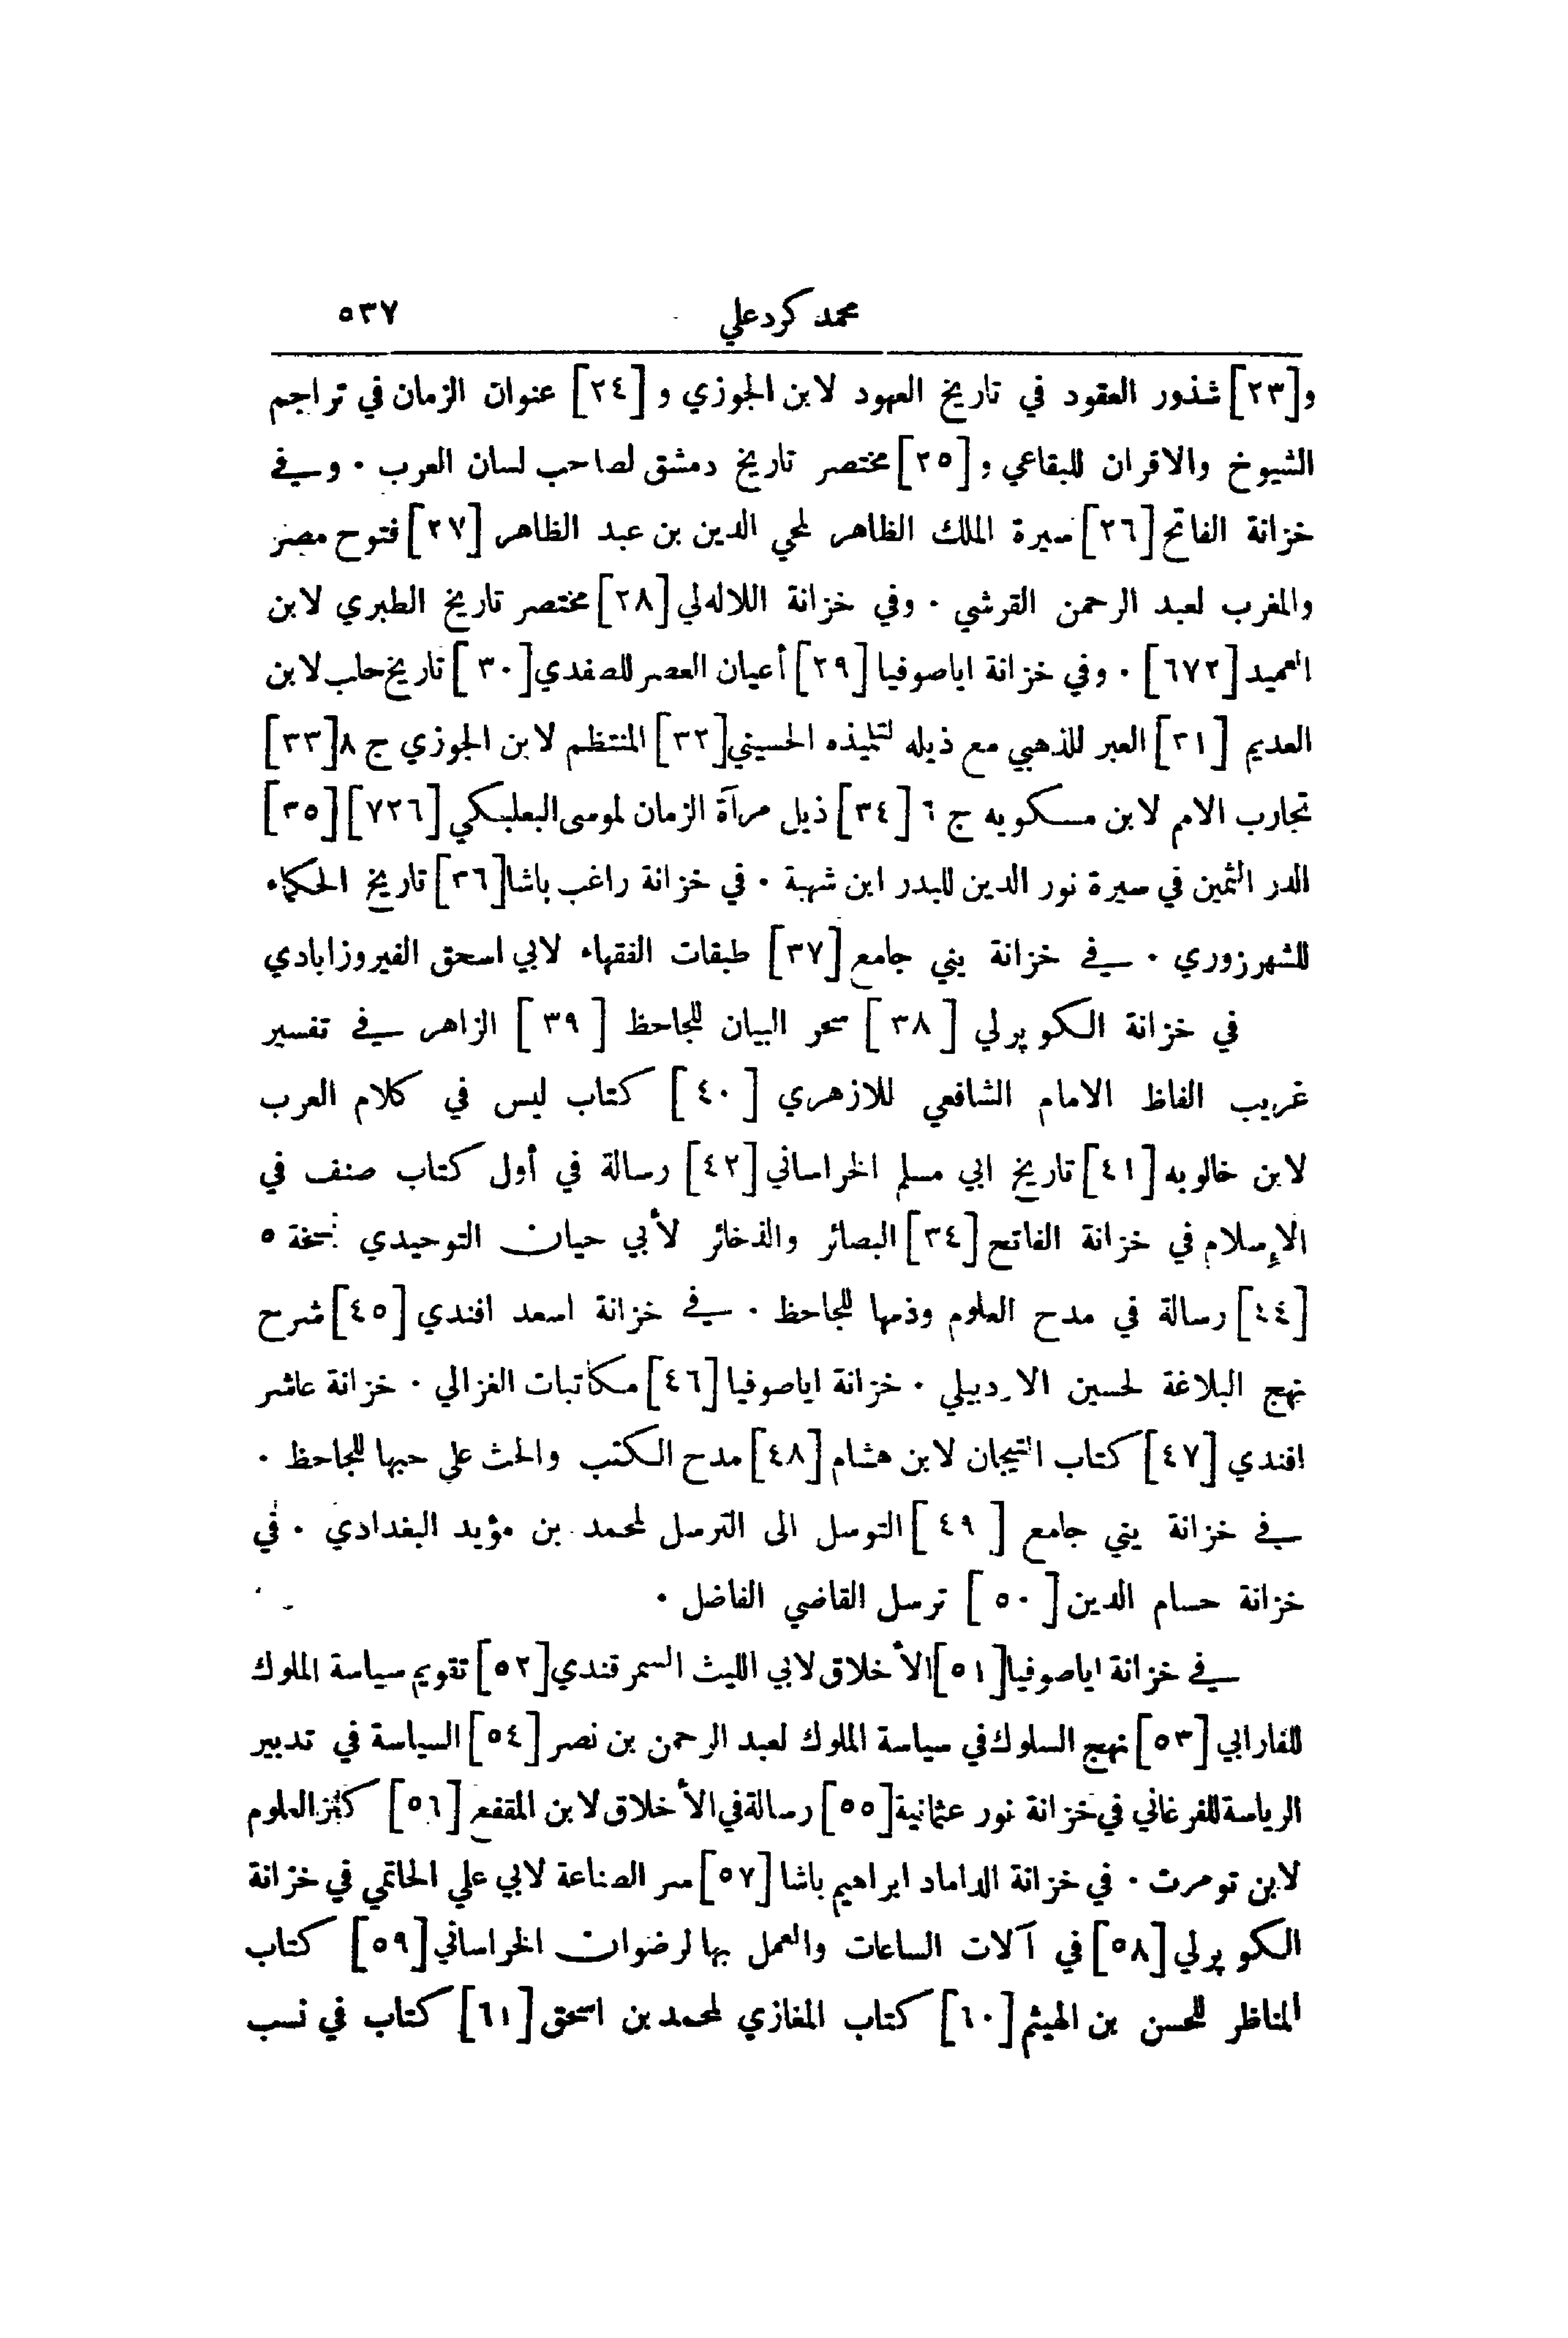 محمد كرد علي ٥٣٧
و[٢٣] شذور العقود في تاريخ العهود لابن الجوزي و [٢٤] عنوان الزمان في تراجم
الشيوخ والاقران للبقاعي و [٢٥] مختصر تاريخ دمشق لصاحب لسان العرب . وفي
خزانة الفاتح [٢٦] سيرة الملك الظاهر لمحي الدين بن عبد الظاهر [٢٧] فتوح مصر
والمغرب لعبد الرحمن القرشي . وفي خزانة اللاله لي [٢٨] مختصر تاريخ الطبري لابن
العميد [٦٧٢] . وفي خزانة اياصوفيا [٢٩] أعيان العصر للصفدي [٣٠] تاريخ حلب لابن
العديم [٣١] العبر للذهبي مع ذيله لتلميذه الحسيني [٣٢] المنتظم لابن الجوزي ج ٨ [٣٣]
تجارب الامم لابن مسكويه ج ٦ [٣٤] ذيل مرآة الزمان لموسى البعلبكي [٧٢٦] [٣٥]
الدر الثمين في سيرة نور الدين للبدر ابن شهبة . في خزانة راغب باشا [٣٦] تاريخ الحكماء
للشهرزوري . في خزانة يني جامع [٣٧] طبقات الفقهاء لابي اسحق الفيروزابادي
في خزانة الكوپرلي [٣٨] سحر البيان للجاحظ [٣٩] الزاهر في تفسير
غريب الفاظ الامام الشافعي للازهري [٤٠] كتاب ليس في كلام العرب
لابن خالويه [٤١] تاريخ ابي مسلم الخراساني [٤٢] رسالة في أول كتاب صنف في
الإسلام في خزانة الفاتح [٣٤] البصائر والذخائر لأبي حيان التوحيدي نسخة ٥
[٤٤] رسالة في مدح العلوم وذمها للجاحظ . في خزانة اسعد افندي [٤٥] شرح
نهج البلاغة لحسين الاردبيلي . خزانة اياصوفيا [٤٦] مكاتبات الغزالي . خزانة عاشر
افندي [٤٧] كتاب التيجان لابن هشام [٤٨] مدح الكتب والحث على حبها للجاحظ .
في خزانة يني جامع [٤٩] التوسل الى الترسل لمحمد بن مؤيد البغدادي . في
خزانة حسام الدين [٥٠] ترسل القاضي الفاضل .
في خزانة اياصوفيا [٥١] الأخلاق لابي الليث السمرقندي [٥٢] تقويم سياسة الملوك
للفارابي [٥٣] نهج السلوك في سياسة الملوك لعبد الرحمن بن نصر [٥٤] السياسة في تدبير
الرياسة للفرغاني في خزانة نور عثمانية [٥٥] رسالة في الأخلاق لابن المقفع [٥٦] كنز العلوم
لابن تومرت . في خزانة الداماد ابراهيم باشا [٥٧] سر الصناعة لابي علي الحاتمي في خزانة
الكوپرلي [٥٨] في آلات الساعات والعمل بها لرضوان الخراساني [٥٩] كتاب
المناظر للحسن بن الهيثم [٦٠] كتاب المغازي لمحمد بن اسحق [٦١] كتاب في نسب